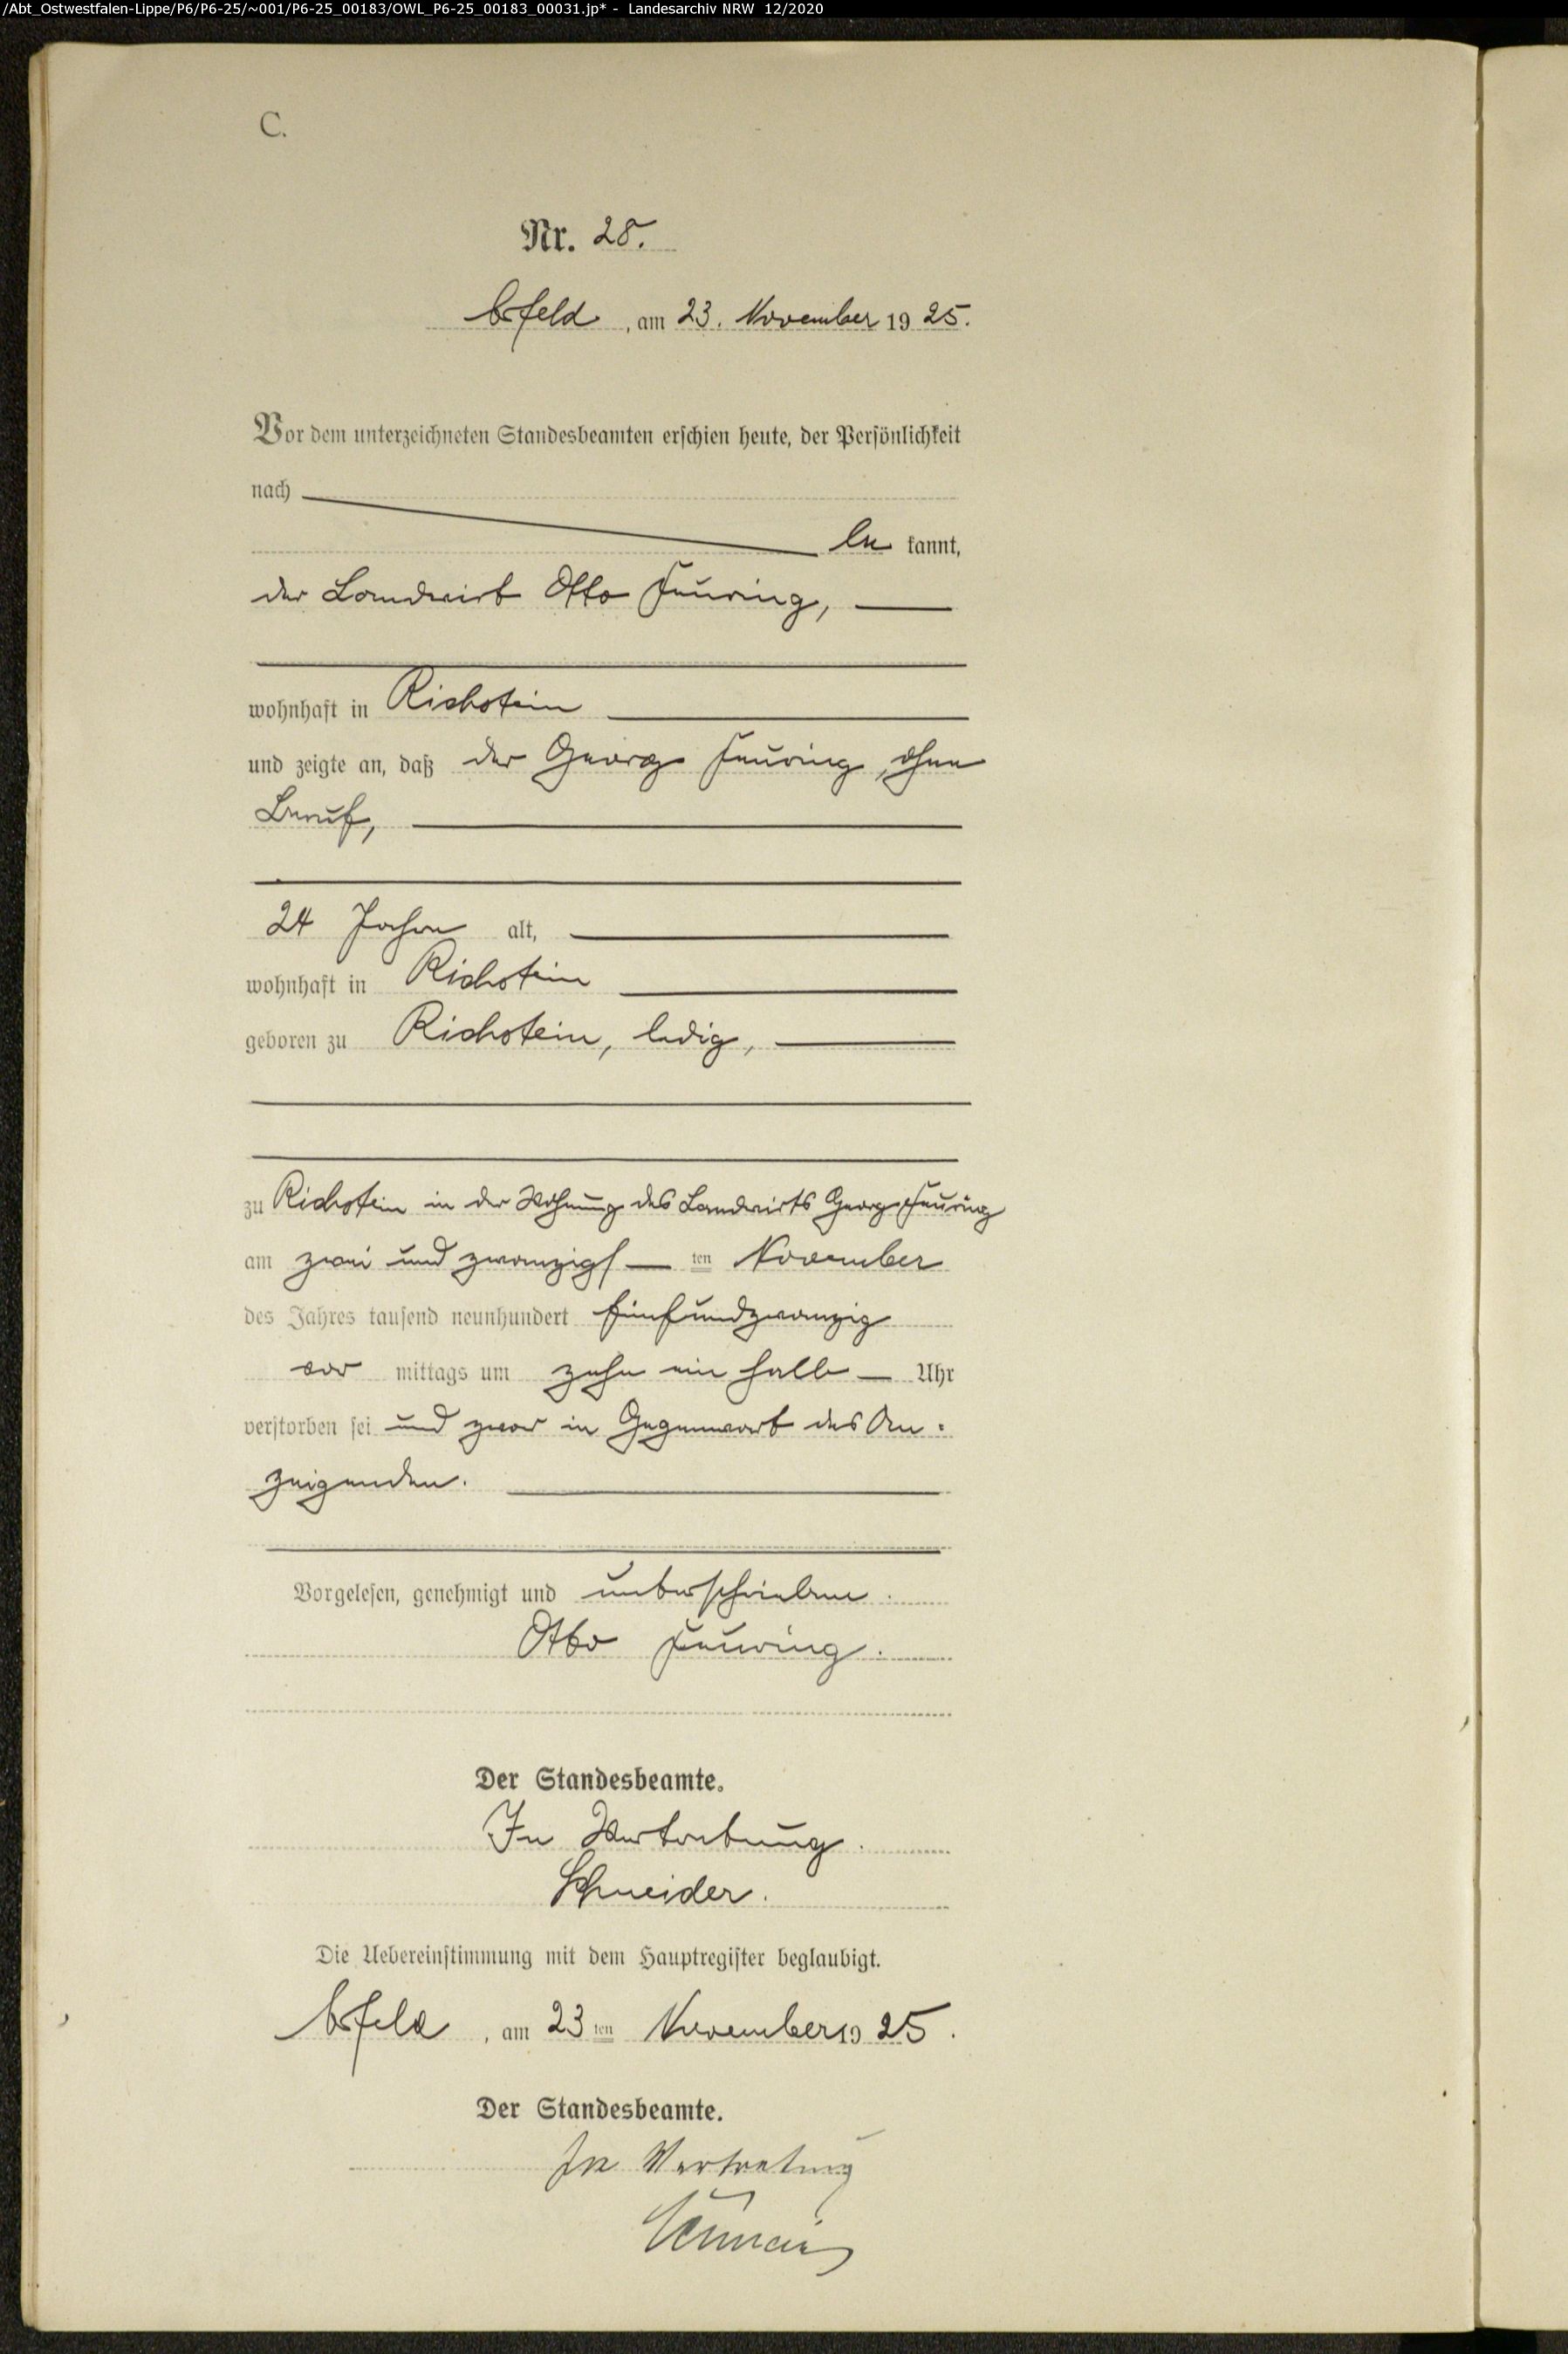 /Abt_Ostwestfalen-Lippe/P6/P6-25/~001/P6-25_00183/OWL_P6-25_00183_00031.jp* - Landesarchiv NRW 12/2020
C.
Nr. 28.
Arfeld, am 23. November 1925.
Vor dem unterzeichneten Standesbeamten erschien heute, der Persönlichkeit
nach
be kannt,
der Landwirt Otto Feuring,
wohnhaft in Richstein
und zeigte an, daß der Georg Feuring, ohne
Beruf,
24 Jahre alt,
wohnhaft in Richstein
geboren zu Richstein, ledig,
zu Richstein in der Wohnung des Landwirts Georg Feuring
am zwei und zwanzigs ten November
des Jahres tausend neunhundert fünfundzwanzig
vor mittags um zehn ein halb Uhr
verstorben sei und zwar in Gegenwart des An=
zeigenden.
Vorgelesen, genehmigt und unterschrieben.
Otto Feuring.
Der Standesbeamte.
In Vertretung.
Schneider.
Die Uebereinstimmung mit dem Hauptregister beglaubigt.
Arfeld, am 23 ten November 1925.
Der Standesbeamte.
In Vertretung